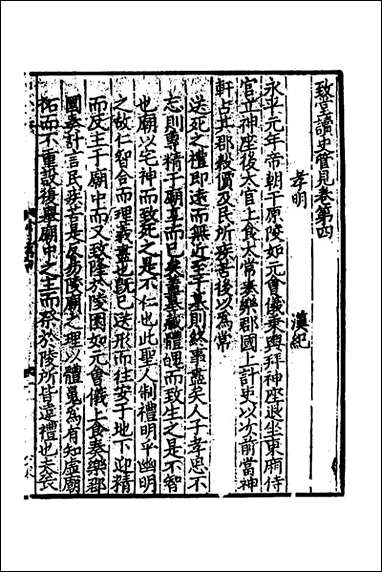 致堂讀史管見卷第四
孝明　漢紀
永平元年帝朝于原陵如元會儀乘輿拜神座退坐東廂侍
官立神座後太官上食太常奏樂郡國上計吏以次前當神
軒占其郡穀價及民所疾苦後以為常
送死之禮即遠而無近至于墓則終事盡矣人子孝思不
忘則專精于廟享而已矣蓋墓藏體魄而致生之是不智
也廟以宅神而致死之是不仁也此聖人制禮明乎幽明
之故仁智合而理義盡也既已送形而往安于地下迎精
而反主于廟中而又致隆於陵園如元會儀上食奏樂郡
國奏計言民疾苦是反易陵廟之理以體魄為有知虛廟
祏而不重設復舉廟中之主而祭於陵所甘違禮也夫喪